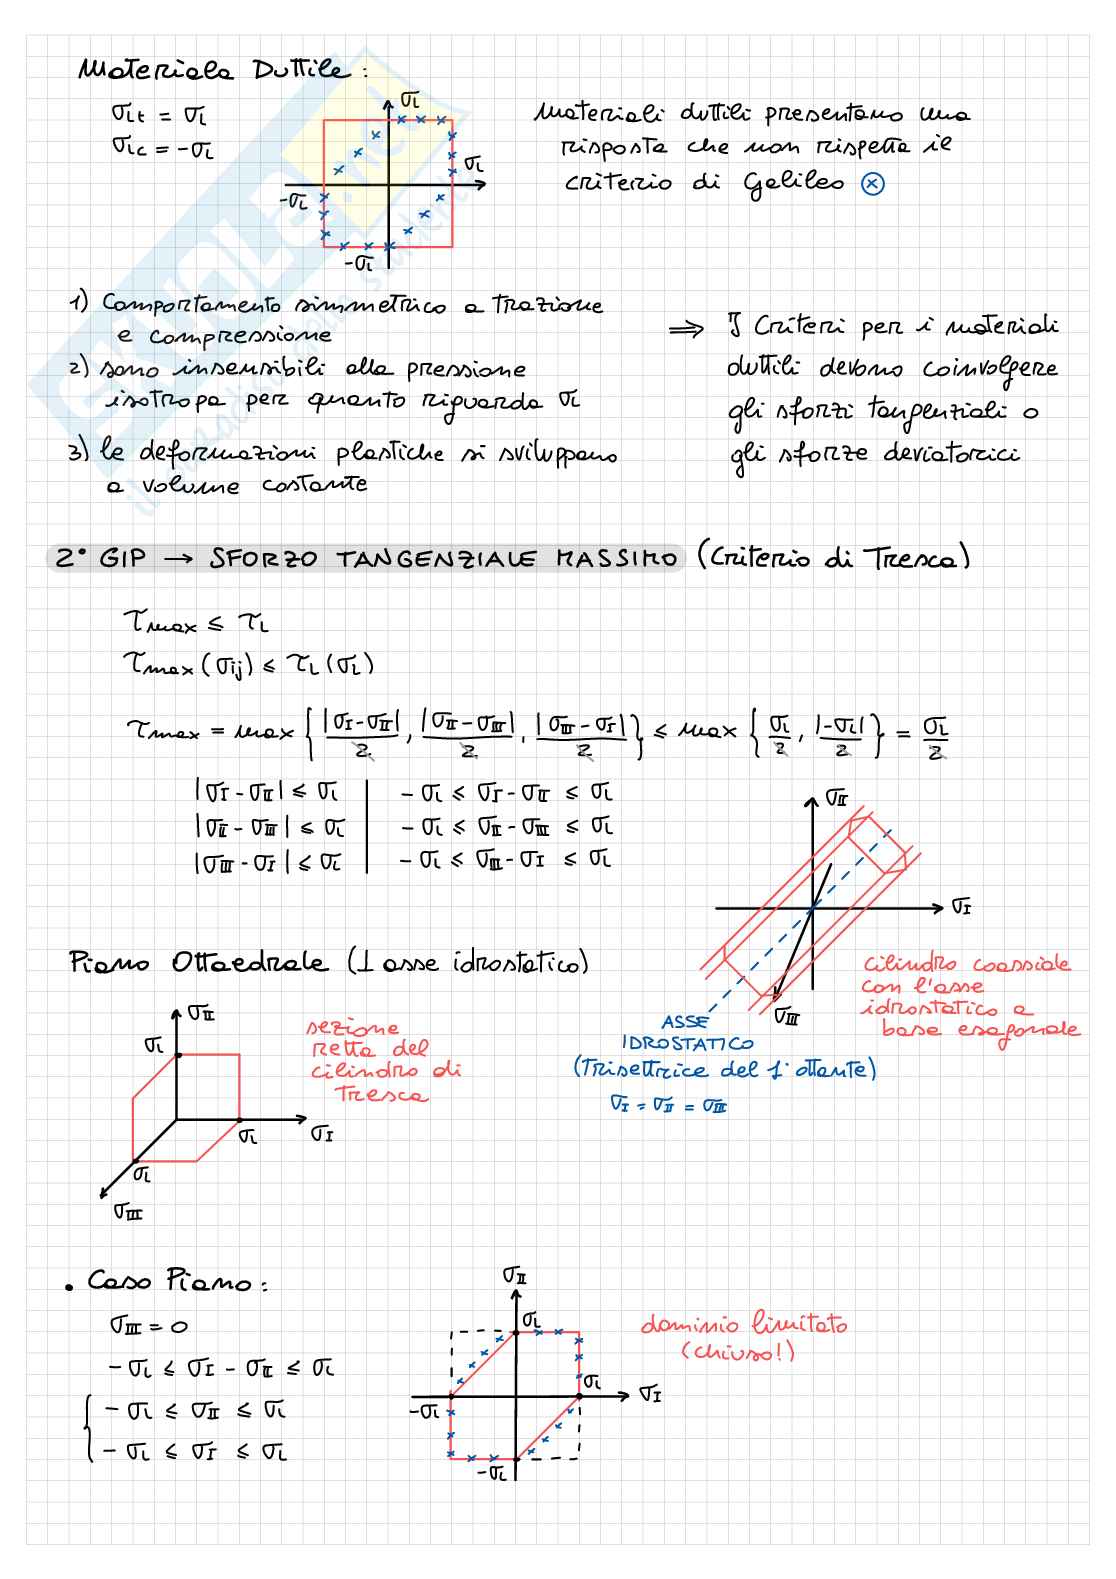 Materiale Duttile :
σLt = σL
σLc = -σL
σL
σL
-σL
-σL
Materiali duttili presentano una
risposta che non rispetta il
criterio di Galileo ⊗
1) Comportamento simmetrico a trazione
e compressione
2) sono insensibili alla pressione
isotropa per quanto riguarda σL
3) le deformazioni plastiche si sviluppano
a volume costante
⇒ I Criteri per i materiali
duttili devono coinvolgere
gli sforzi tangenziali o
gli sforze deviatorici
2° GIP → SFORZO TANGENZIALE MASSIMO (Criterio di Tresca)
τmax ≤ τL
τmax (σij) ≤ τL (σL)
τmax = max { |σI - σII| / 2 , |σII - σIII| / 2 , |σIII - σI| / 2 } ≤ max { σL / 2 , |-σL| / 2 } = σL / 2
|σI - σII| ≤ σL | - σL ≤ σI - σII ≤ σL
|σII - σIII| ≤ σL | - σL ≤ σII - σIII ≤ σL
|σIII - σI| ≤ σL | - σL ≤ σIII - σI ≤ σL
σII
σI
σIII
cilindro coassiale
con l'asse
idrostatico a
base esagonale
ASSE
IDROSTATICO
(Trisettrice del 1° ottante)
σI = σII = σIII
Piano Ottaedrale (⊥ asse idrostatico)
σII
σL
σI
σL
σL
σIII
sezione
retta del
cilindro di
Tresca
• Caso Piano :
σIII = 0
- σL ≤ σI - σII ≤ σL
{ - σL ≤ σII ≤ σL
- σL ≤ σI ≤ σL
σII
σL
σL
σI
-σL
-σL
dominio limitato
(chiuso!)
SKUOLA.net